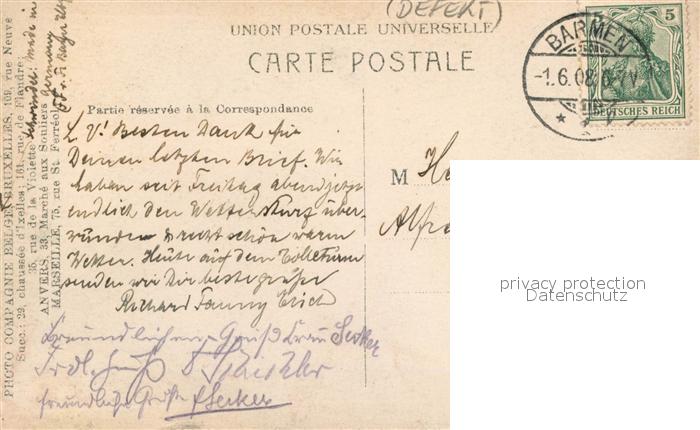 (DEFEKT)
UNION POSTALE UNIVERSELLE
CARTE POSTALE
BARMEN
-1.6.08
5
DEUTSCHES REICH
Partie réservée à la Correspondance
L. V! Besten Dank für
Deinen letzten Brief. Wir
haben seit Freitag abend jetzt
endlich den Wettersturz über-
wunden & recht schön warm
Wetter. Heute auf dem Tölleturm
senden wir Dir beste Grüße
Richard Fanny Erich
Freundlichen Gruß Frau
Frdl. Gruß
freundliche Grüße
M
Alfre
privacy protection
Datenschutz
PHOTO COMPAGNIE BELGE, BRUXELLES, 109, rue Neuve
Succ.: 29, chaussée d'Ixelles; 161, rue de Flandre;
35, rue de la Violette
ANVERS, 33, Marché aux Souliers
MARSEILLE, 75, rue St. Ferréol
Schwindel: made in
Germany